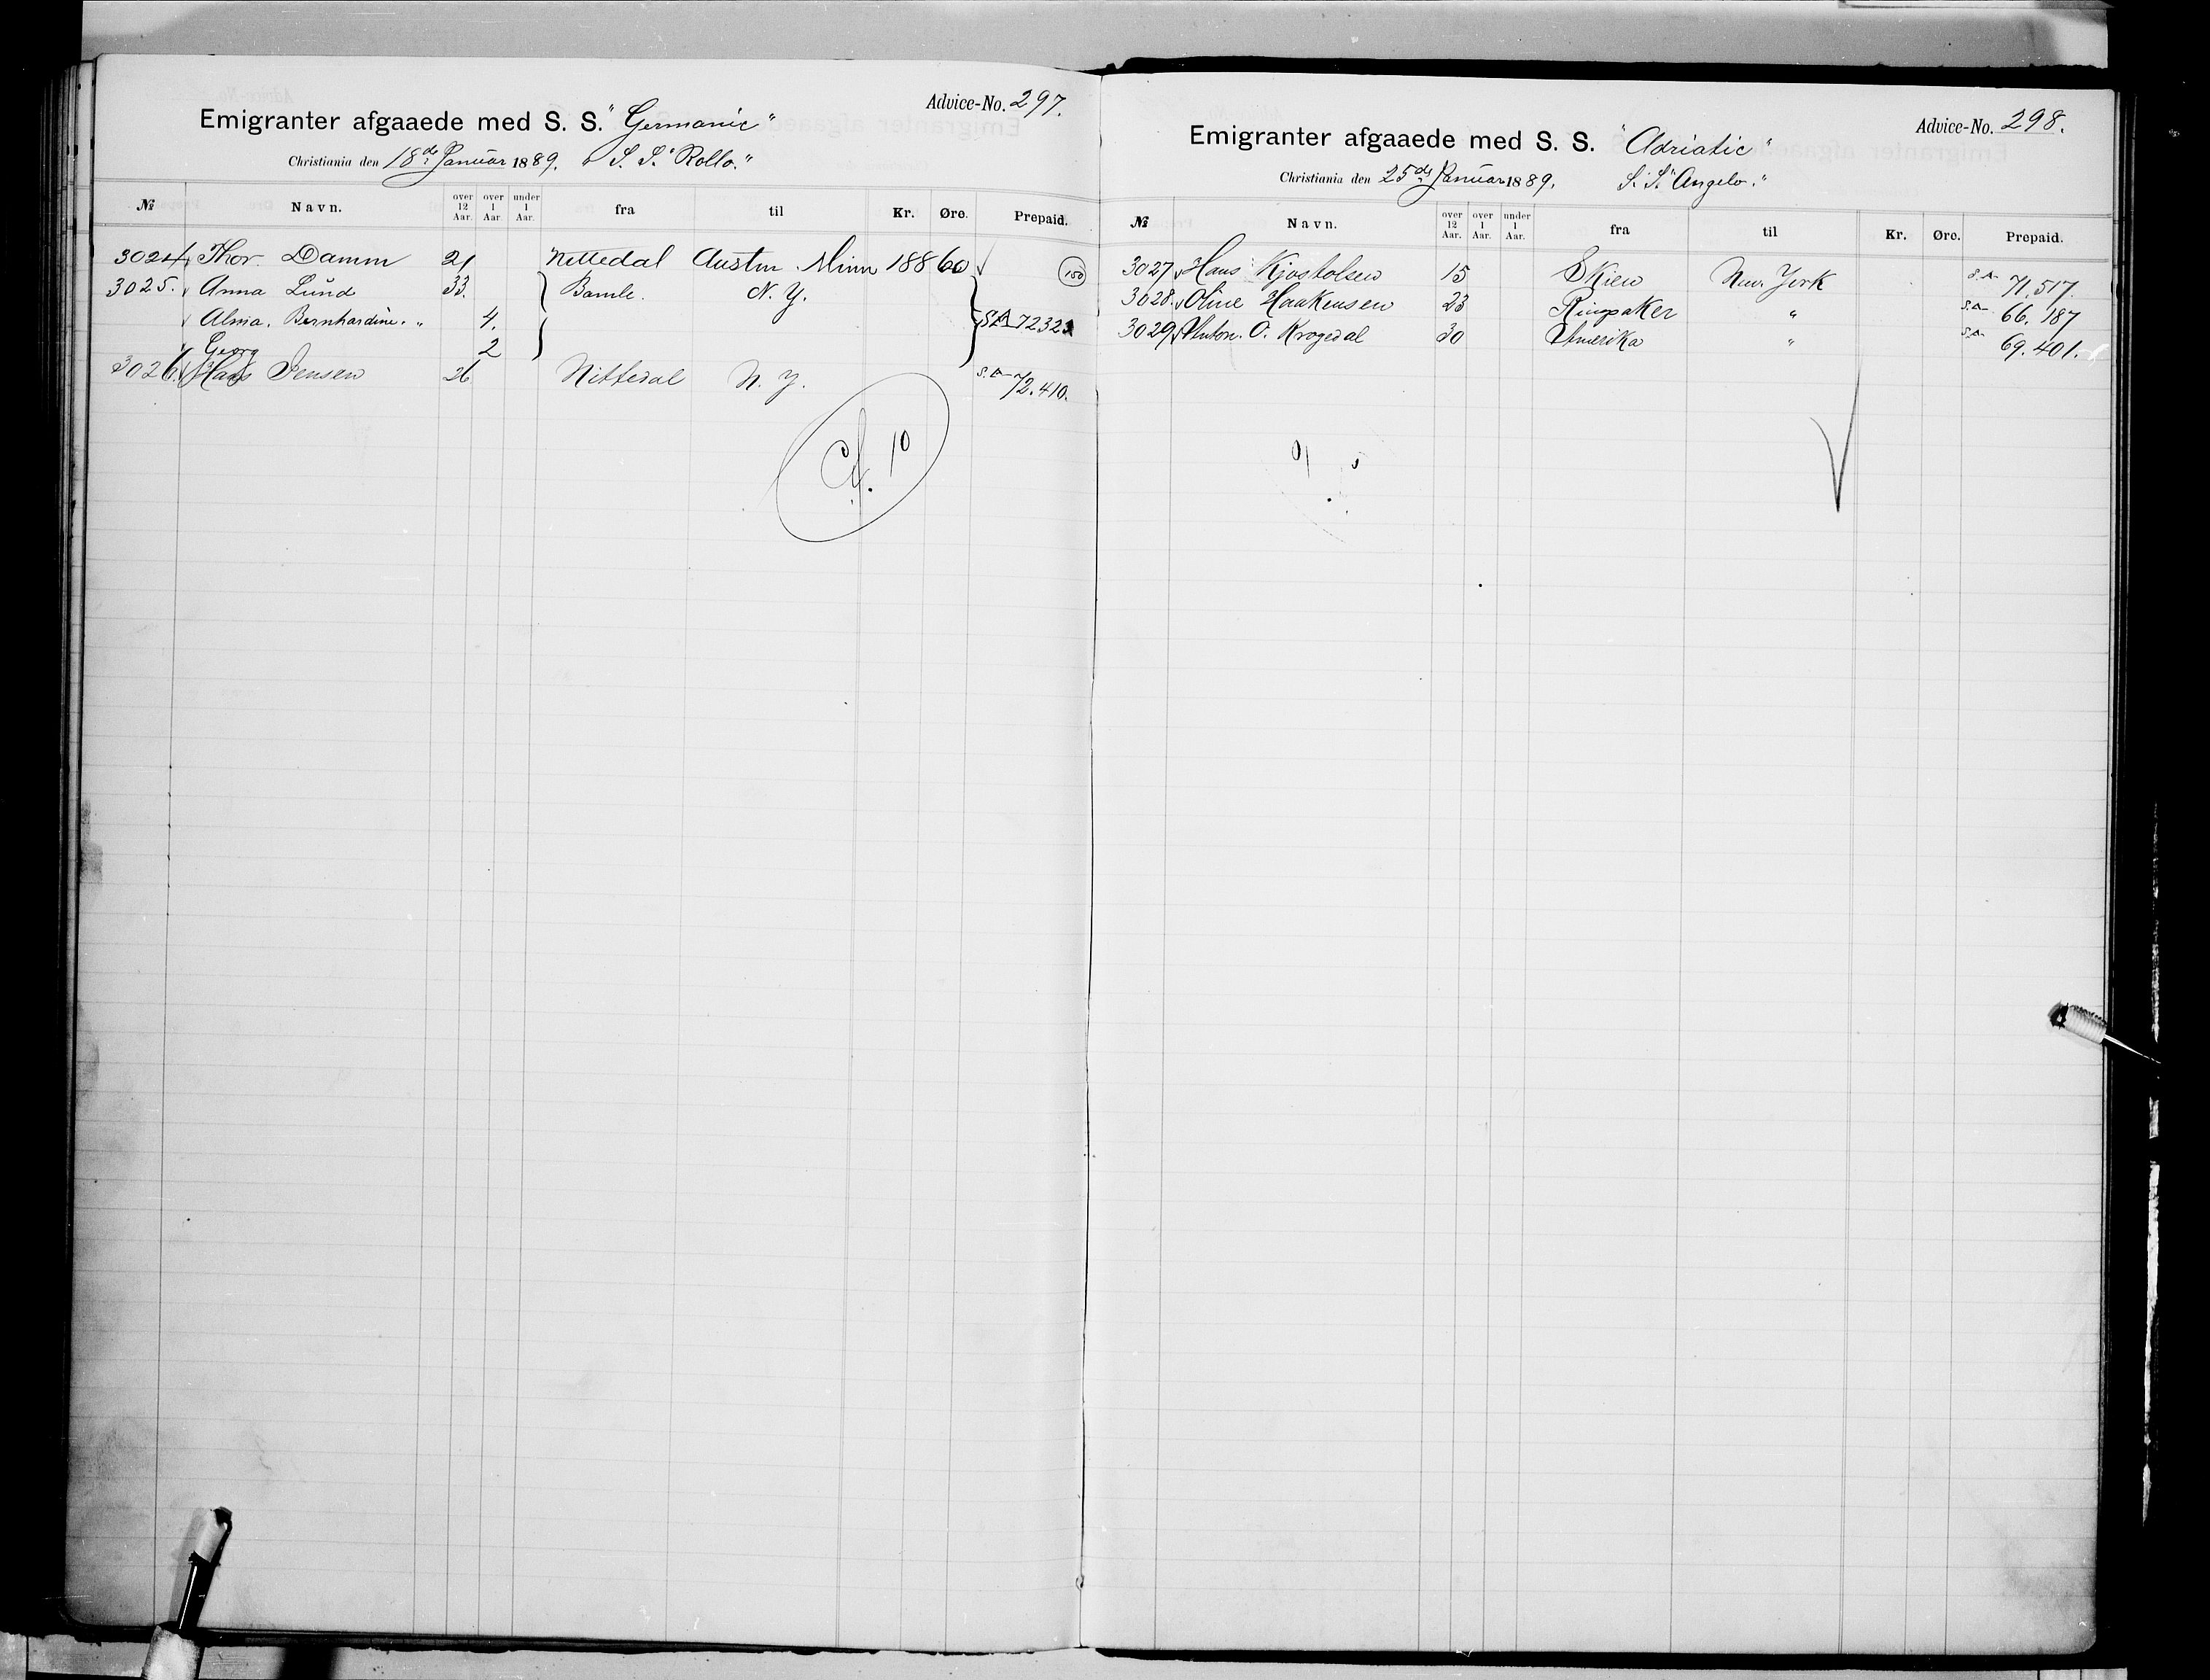 Advice-No. 297.
Emigranter afgaaede med S. S. "Germanic"
Christiania den 18de Januar 1889. S. S. "Rollo."
№ Navn. over 12 Aar. over 1 Aar. under 1 Aar. fra til Kr. Øre. Prepaid.
3024 Thor. Damm 21 Nittedal Austin Minn 188 60 150
3025. Anna Lund 33. Bamle. N. Y.
Alma. Bernhardine. " 4. S.A 72323
Georg 2
3026. Hans Jensen 26 Nittedal N. Y. S.A 72.410.
10
Advice-No. 298.
Emigranter afgaaede med S. S. "Adriatic"
Christiania den 25de Januar 1889. S. S. "Angelo."
№ Navn. over 12 Aar. over 1 Aar. under 1 Aar. fra til Kr. Øre. Prepaid.
3027 Hans Kjostolsen 15 Skien New. York S.A 71.517.
3028. Oline Haakensen 23 Ringsaker " S.A 66.187
3029 Anton. O. Krogedal 30 Amerika " S.A 69.401.